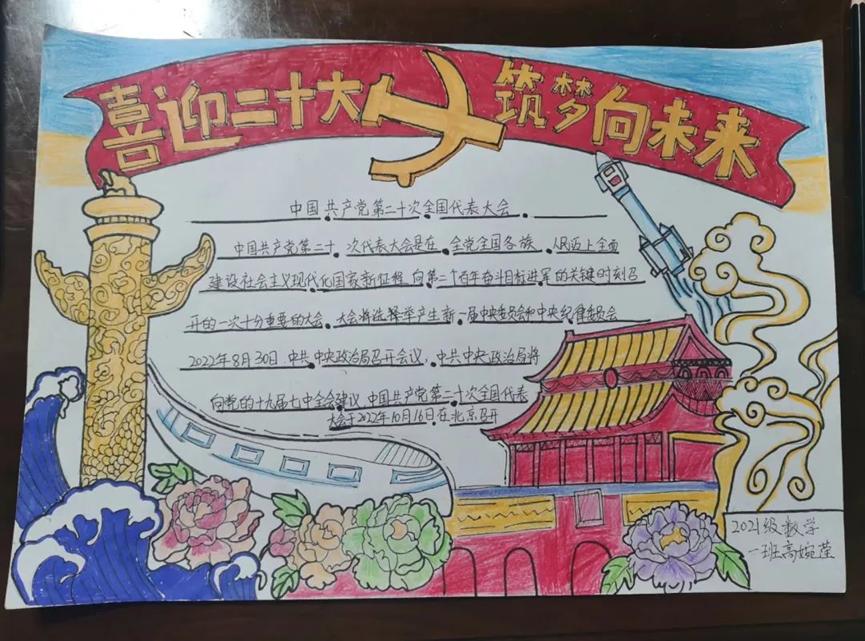 喜迎二十大 筑梦向未来
中国共产党第二十次全国代表大会
中国共产党第二十次代表大会是在全党全国各族人民迈上全面
建设社会主义现代化国家新征程,向第二个百年奋斗目标进军的关键时刻召
开的一次十分重要的大会。大会将选择举产生新一届中央委员会和中央纪律委员会
2022年8月30日中共中央政治局召开会议,中共中央政治局将
向党的十九届七中全会建议,中国共产党第二十次全国代表
大会于2022年10月16日在北京召开
2021级数学
一班高婉莲